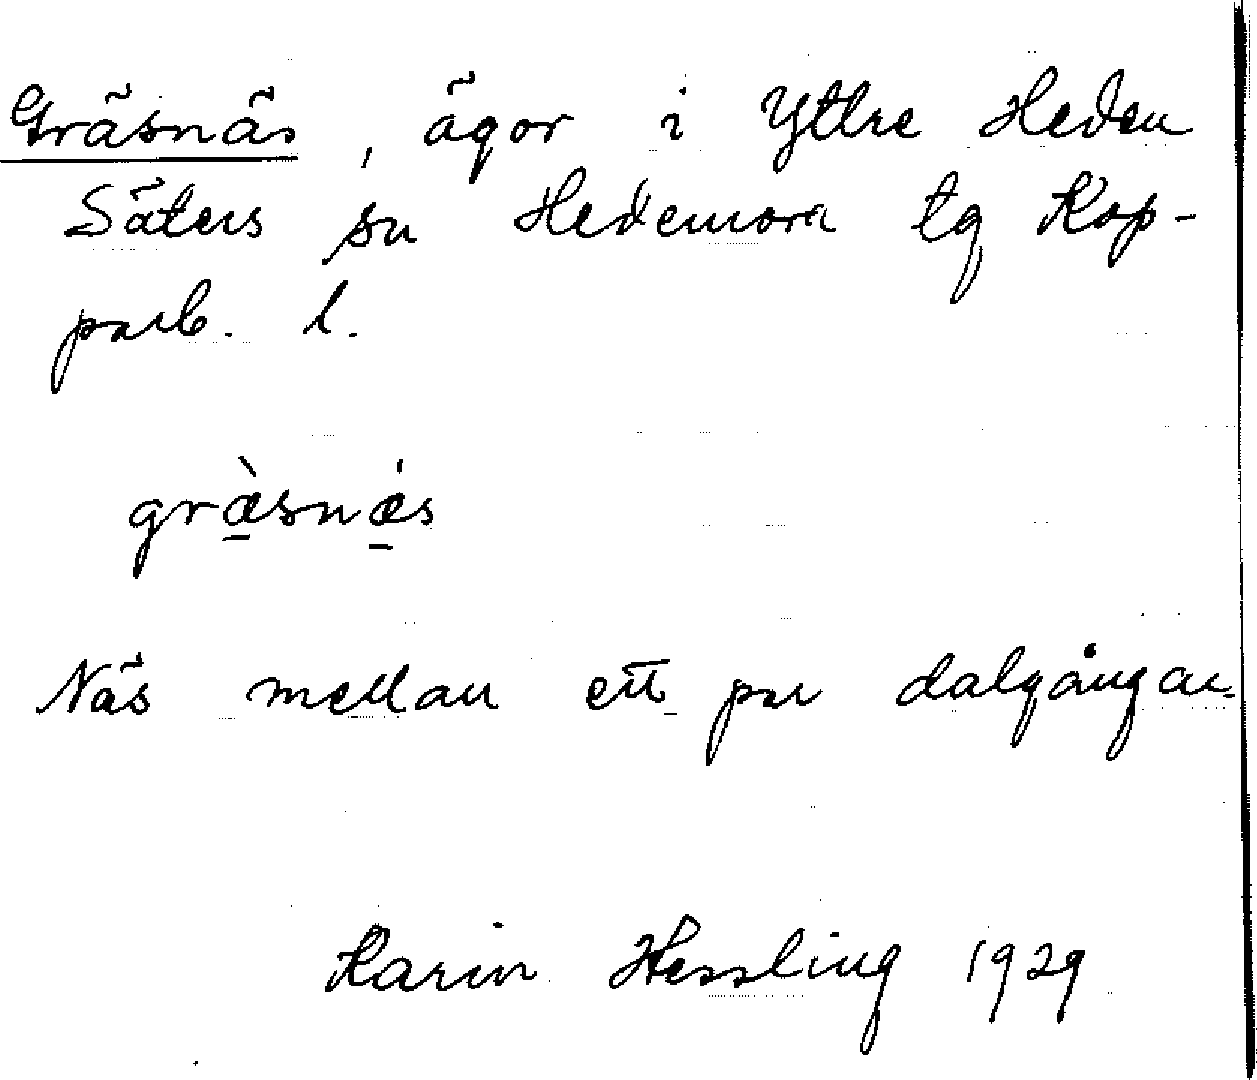 Gräsnäs, ägor i Yttre Heden
Säters sn Hedemora tg Kop-
parb. l.
græ̠̀snǽ̠s
Näs mellan ett par dalgångar.
Karin Hessling 1929